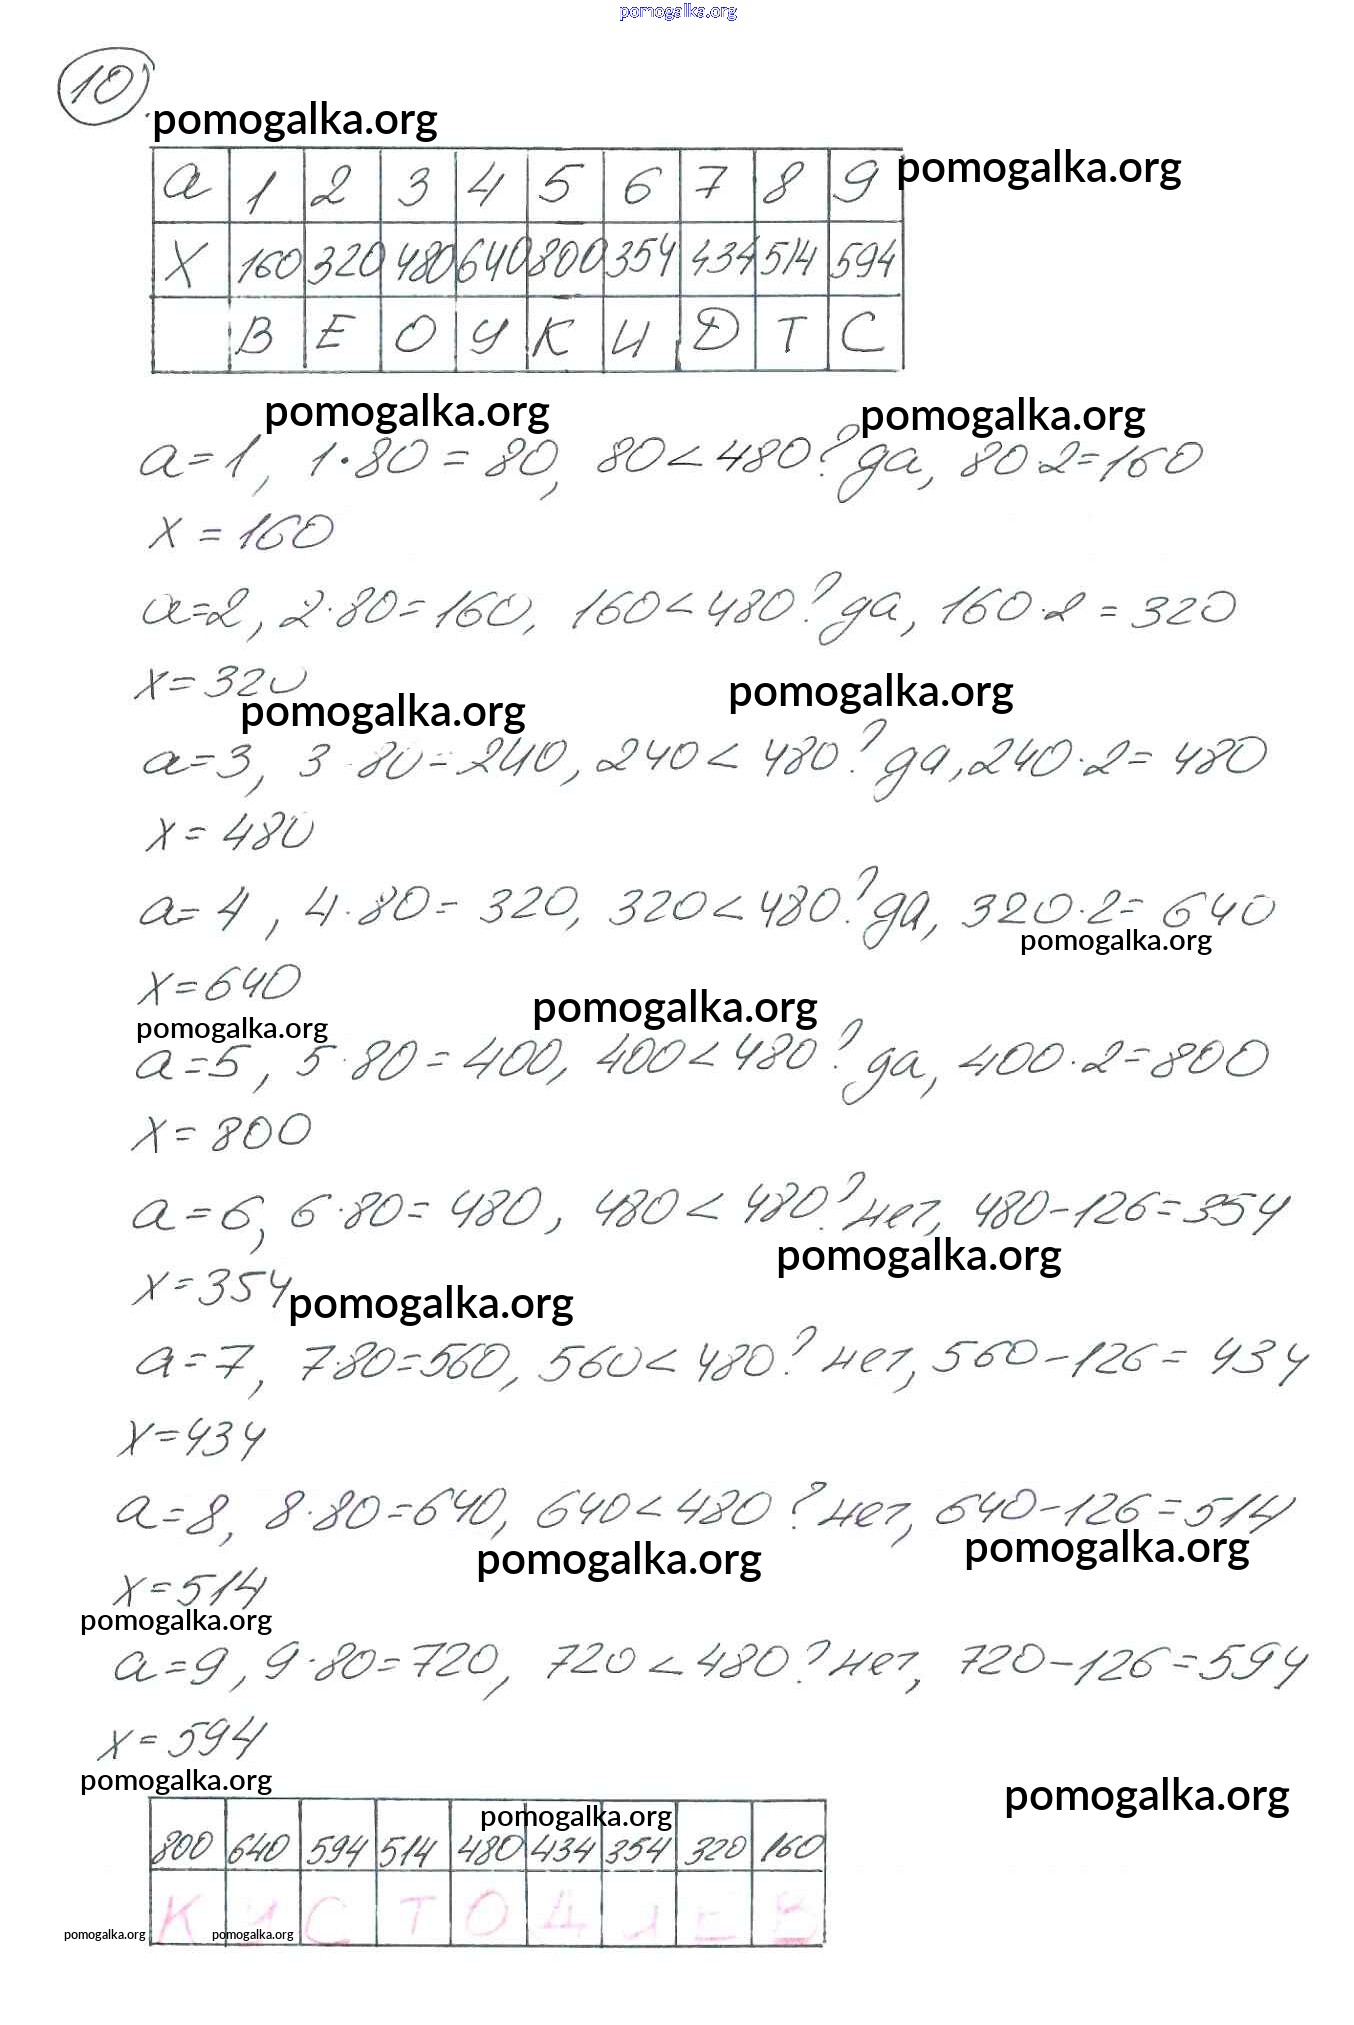 pomogalka.org
10.
pomogalka.org
a 1 2 3 4 5 6 7 8 9 pomogalka.org
x 160 320 480 640 800 354 434 514 594
В Е О У К И Д Т С
pomogalka.org pomogalka.org
a=1, 1·80=80, 80<480? да, 80·2=160
x=160
a=2, 2·80=160, 160<480? да, 160·2=320
x=320
pomogalka.org pomogalka.org
a=3, 3·80=240, 240<480? да, 240·2=480
x=480
a=4, 4·80=320, 320<480? да, 320·2=640
pomogalka.org
x=640
pomogalka.org pomogalka.org
a=5, 5·80=400, 400<480? да, 400·2=800
x=800
a=6, 6·80=480, 480<480? нет, 480-126=354
pomogalka.org
x=354 pomogalka.org
a=7, 7·80=560, 560<480? нет, 560-126=434
x=434
a=8, 8·80=640, 640<480? нет, 640-126=514
pomogalka.org pomogalka.org
x=514
pomogalka.org
a=9, 9·80=720, 720<480? нет, 720-126=594
x=594
pomogalka.org pomogalka.org
pomogalka.org
800 640 594 514 480 434 354 320 160
К У С Т О Д И Е В
pomogalka.org pomogalka.org